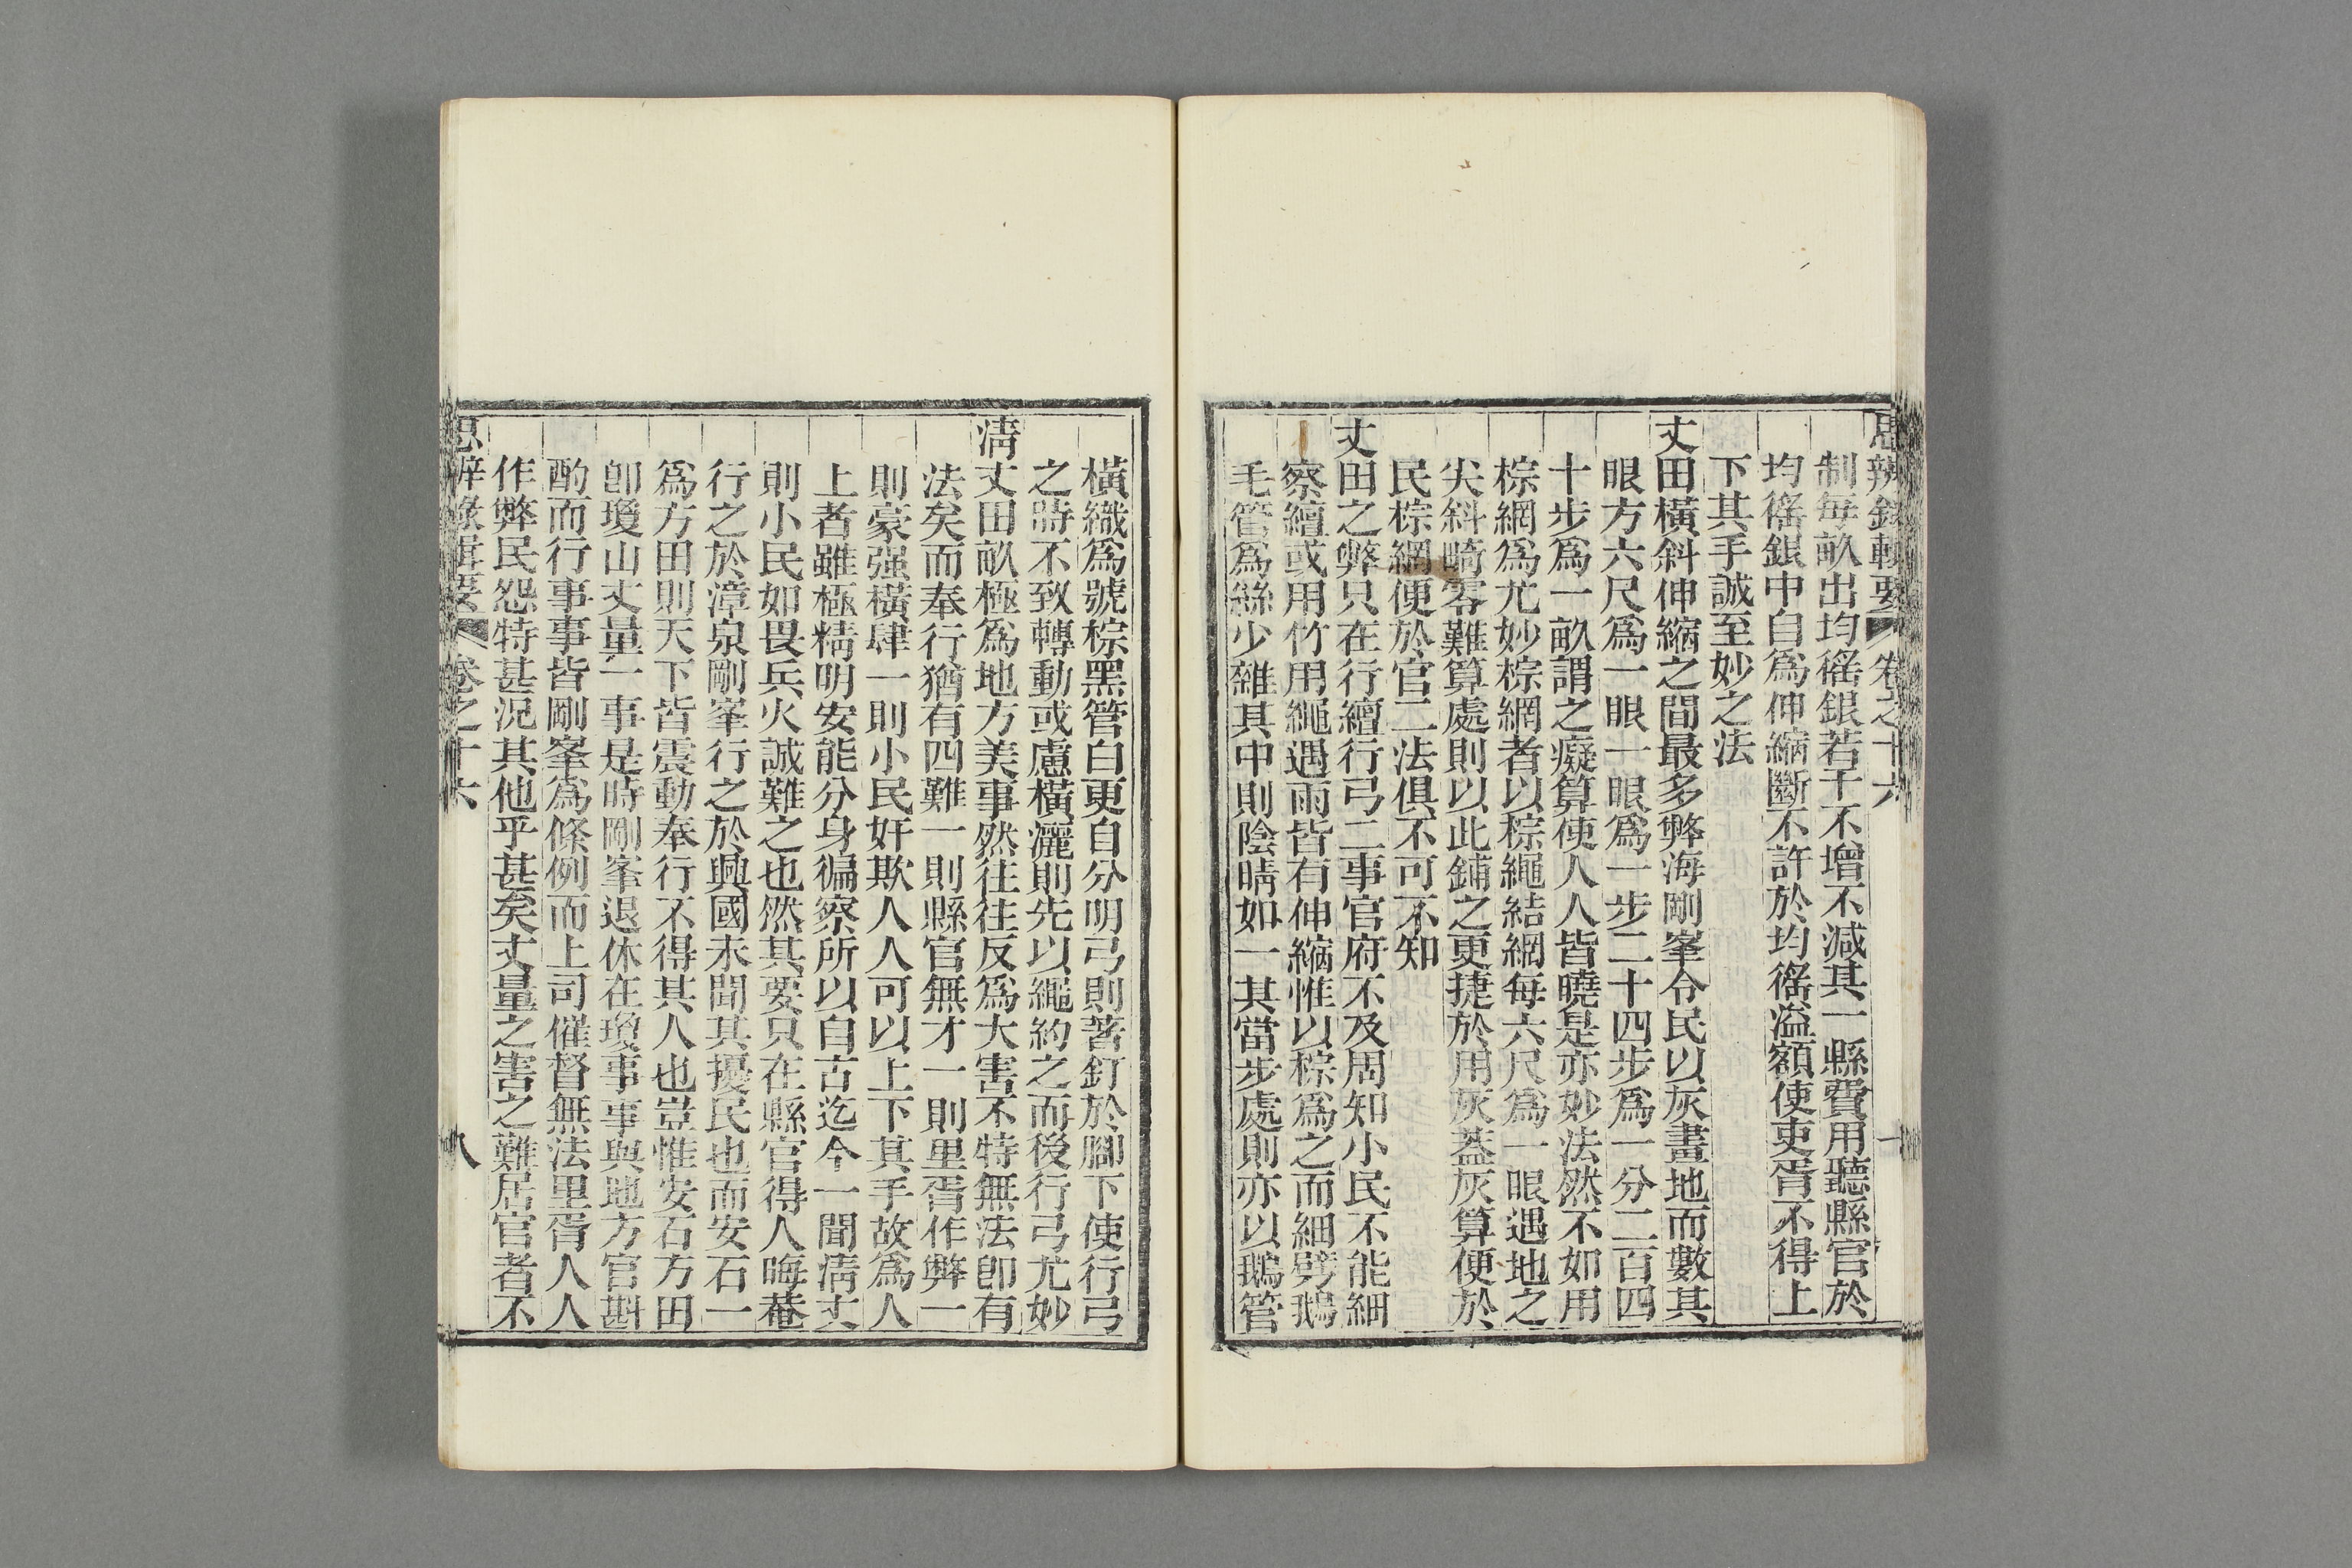 思辨錄輯要 卷之十六
制每畝出均徭銀若干不增不減其一縣費用聽縣官於
均徭銀中自爲伸縮斷不許於均徭溢額使吏胥不得上
下其手誠至妙之法
丈田橫斜伸縮之間最多弊海剛峯令民以灰畫地而數其
眼方六尺爲一眼一眼爲一步二十四步爲一分二百四
十步爲一畝謂之癡算使人人皆曉是亦妙法然不如用
棕網爲尤妙棕網者以棕繩結網每六尺爲一眼遇地之
尖斜畸零難算處則以此鋪之更捷於用灰蓋灰算便於
民棕網便於官二法俱不可不知
丈田之弊只在行繪行弓二事官府不及周知小民不能細
察繪或用竹用繩遇雨皆有伸縮惟以棕爲之而細劈鵝
毛管爲絲少雜其中則陰晴如一其當步處則亦以鵝管
橫織爲號棕黑管白更自分明弓則著釘於腳下使行弓
之時不致轉動或慮橫灑則先以繩約之而後行弓尤妙
清丈田畝極爲地方美事然往往反爲大害不特無法卽有
法矣而奉行猶有四難一則縣官無才一則里胥作弊一
則豪强橫肆一則小民奸欺人人可以上下其手故爲人
上者雖極精明安能分身徧察所以自古迄今一聞清丈
則小民如畏兵火誠難之也然其要只在縣官得人晦菴
行之於漳泉剛峯行之於興國未聞其擾民也而安石一
爲方田則天下皆震動奉行不得其人也豈惟安石方田
卽瓊山丈量一事是時剛峯退休在瓊事事與地方官斟
酌而行事事皆剛峯爲條例而上司催督無法里胥人人
作弊民怨特甚況其他乎甚矣丈量之害之難居官者不
思辨錄輯要 卷之十六 八